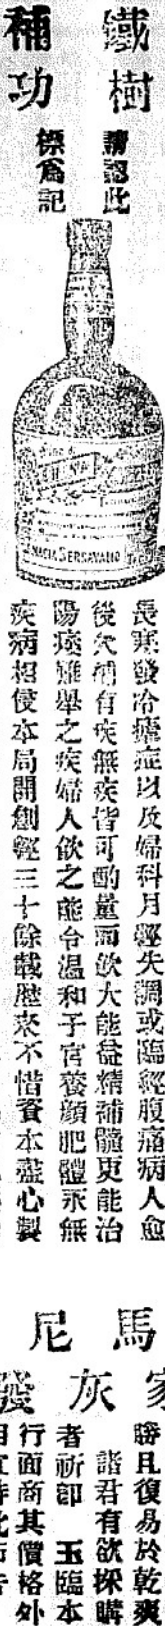 鐵樹
補功
請認此
標爲記
CHINA
SERRAVALLO
長寒發冷瘧症以及婦科月經失調或臨經腹痛病人愈
後欠補有疾無疾皆可酌量而飲大能益精補髓更能治
陽痿難舉之疾婦人飲之能令温和子宮養顏肥體永無
疾病相侵本局開創經三十餘載歷來不惜資本盡心製
馬
尼
家灰
發
勝且復易於乾爽
諸君有欲採購
者祈卽 玉臨本
行面商其價格外